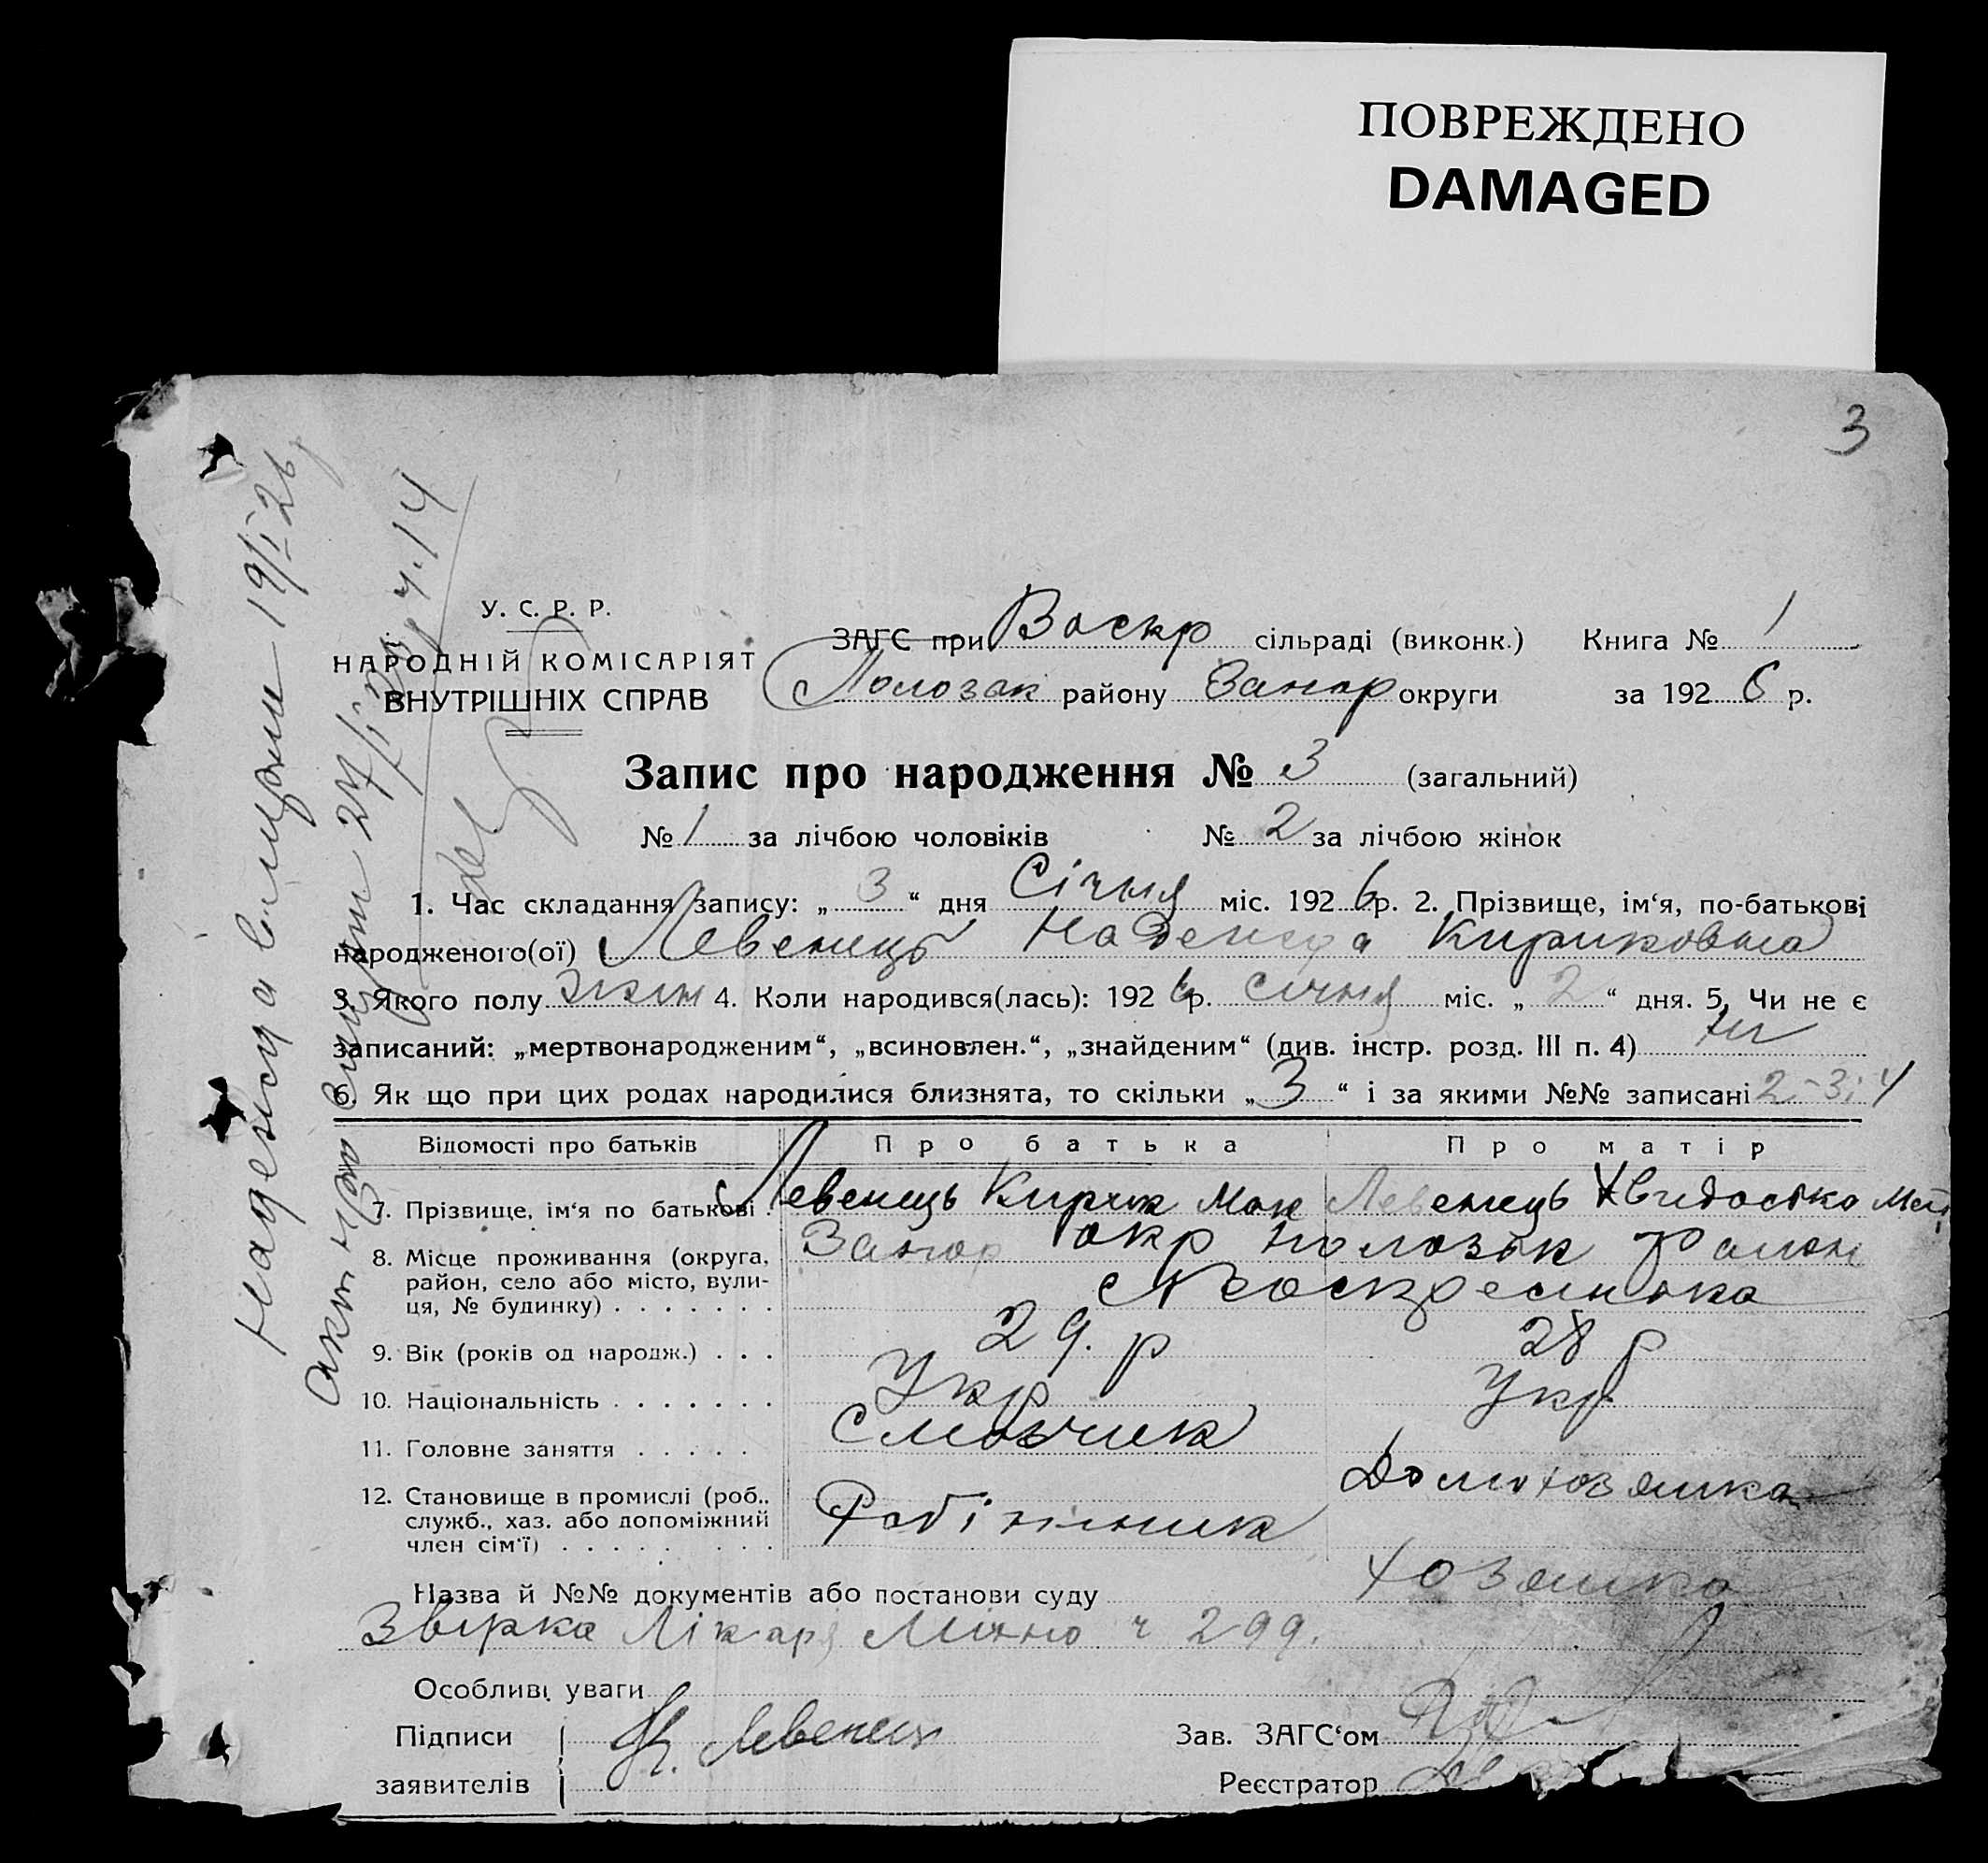 ПОВРЕЖДЕНО
DAMAGED
3
У. С. Р. Р.
НАРОДНІЙ КОМІСАРІЯТ
ВНУТРІШНІХ СПРАВ
ЗАГС при Воскр сільраді (виконк.) Книга № 1
Полозьк району Запор округи за 1926 р.
Запис про народження № 3 (загальний)
№ 1 за лічбою чоловіків № 2 за лічбою жінок
1. Час складання запису: „ 3 “ дня Січня міс. 1926 р. 2. Прізвище, ім‘я, по-батькові
народженого(ої) Левенець Надежда Кириковна
3. Якого полу жін 4. Коли народився(лась): 1926 р. січня міс. „ 2 “ дня. 5. Чи не є
записаний: „мертвонародженим“, „всиновлен.“, „знайденим“ (див. інстр. розд. III п. 4) ни
6. Як що при цих родах народилися близнята, то скільки „ 3 “ і за якими №№ записані 2-3; 4
Відомості про батьків Про батька Про матір
7. Прізвище, ім‘я по батькові . Левенець Кирик Мак Левенець
8. Місце проживання (округа, Запор окр Полозьк Район
район, село або місто, вули-
ця, № будинку) . . . . . . . Воскресинька
9. Вік (років од народж.) . . . 29. р 28 р
10. Національність . . . . . . . Укр Укр
11. Головне заняття . . . . .
Домохозяика
12. Становище в промислі (роб..
служб., хаз. або допоміжний Робітник
член сім‘ї) . . . . . . . .
хозяика
Назва й №№ документів або постанови суду
Лікаря ч 299.
Особливі уваги
Підписи К. Левенец Зав. ЗАГС‘ом
заявителів Реєстратор
Надежда 19/I 26
27/I ч. 14